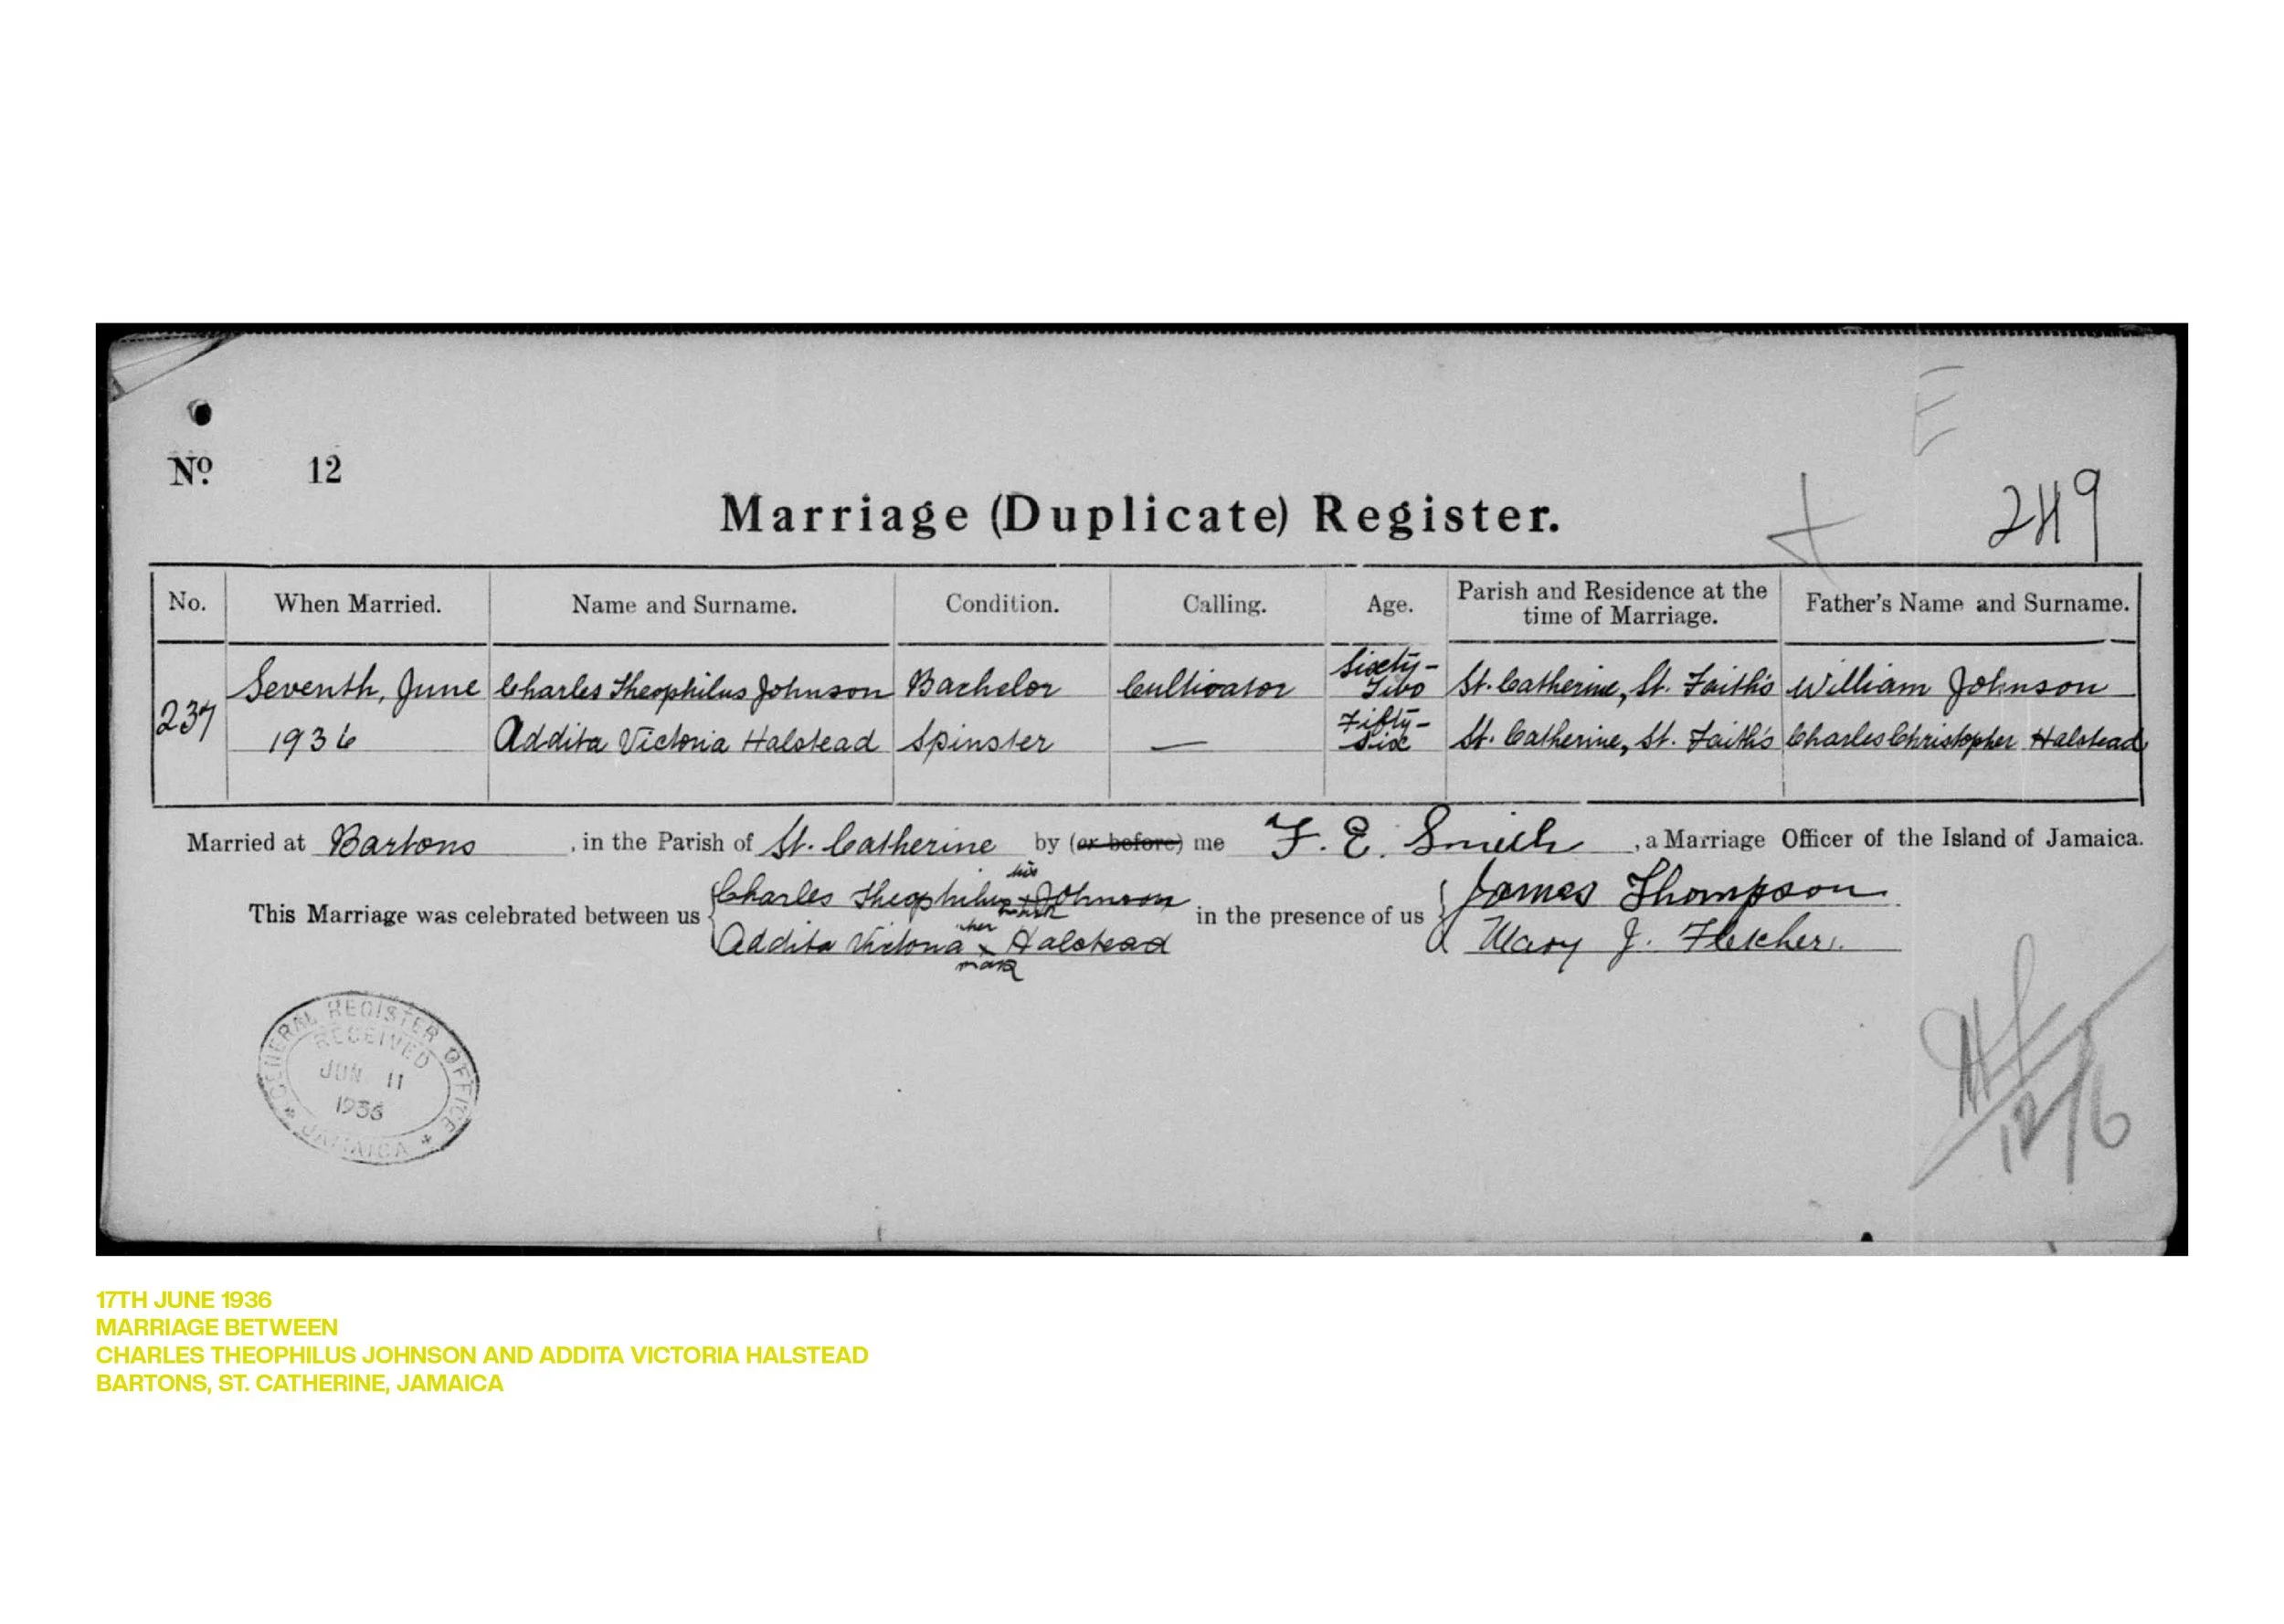 E
Nº 12
249
Marriage (Duplicate) Register.
No. When Married. Name and Surname. Condition. Calling. Age. Parish and Residence at the time of Marriage. Father's Name and Surname.
237 Seventh, June Charles Theophilus Johnson Bachelor Cultivator Sixty-Two St. Catherine, St. Faith's William Johnson
1936 Addita Victoria Halstead Spinster — Fifty-Six St. Catherine, St. Faith's Charles Christopher Halstead
Married at Bartons, in the Parish of St. Catherine by (or before) me F. E. Smith, a Marriage Officer of the Island of Jamaica.
This Marriage was celebrated between us Charles Theophilus his x mark Johnson in the presence of us James Thompson
Addita Victoria her x mark Halstead Mary J. Fletcher.
GENERAL REGISTER OFFICE
RECEIVED
JUN 11
1936
JAMAICA
12/6
17TH JUNE 1936
MARRIAGE BETWEEN
CHARLES THEOPHILUS JOHNSON AND ADDITA VICTORIA HALSTEAD
BARTONS, ST. CATHERINE, JAMAICA